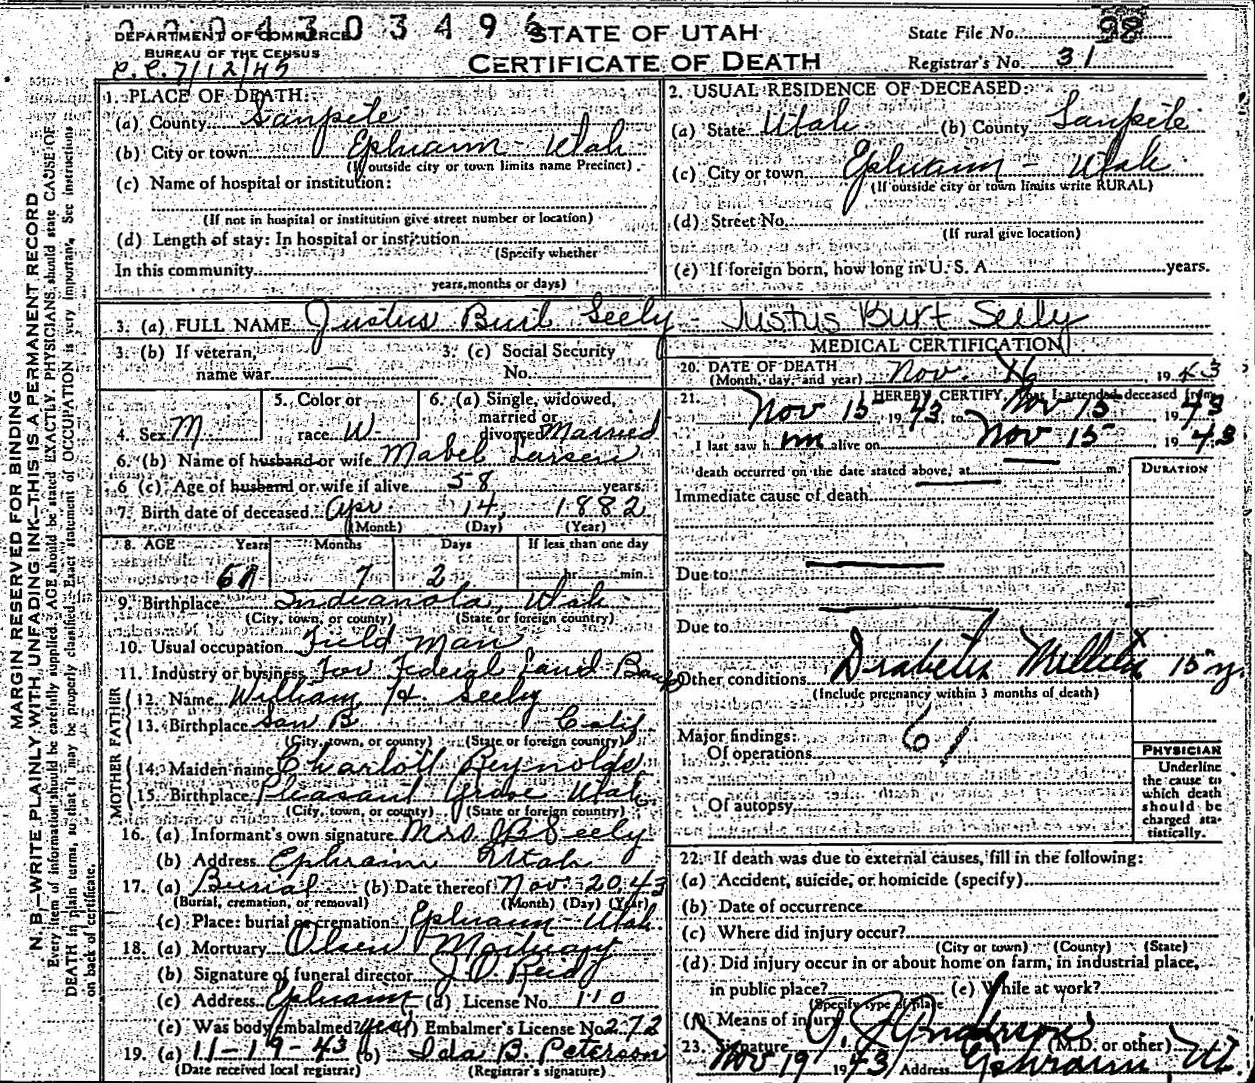 2 2 0 4 3 0 3 4 9 6
DEPARTMENT OF COMMERCE
BUREAU OF THE CENSUS
C.C. 7/12/45
STATE OF UTAH
CERTIFICATE OF DEATH
State File No. 98
Registrar's No. 31
1. PLACE OF DEATH:
(a) County Sanpete
(b) City or town Ephraim - Utah
(If outside city or town limits name Precinct)
(c) Name of hospital or institution:
(If not in hospital or institution give street number or location)
(d) Length of stay: In hospital or institution
(Specify whether
In this community
years, months or days)
2. USUAL RESIDENCE OF DECEASED:
(a) State Utah (b) County Sanpete
(c) City or town Ephraim - Utah
(If outside city or town limits write RURAL)
(d) Street No.
(If rural give location)
(e) If foreign born, how long in U. S. A. years.
3. (a) FULL NAME Justus Burt Seely - Justus Burt Seely
3. (b) If veteran, name war —
3. (c) Social Security No.
4. Sex M
5. Color or race W
6. (a) Single, widowed, married or divorced Married
6. (b) Name of husband or wife Mabel Larsen
6 (c) Age of husband or wife if alive 58 years.
7. Birth date of deceased Apr 14, 1882
(Month) (Day) (Year)
8. AGE Years Months Days If less than one day
61 7 2 hr. min.
9. Birthplace Indianola, Utah
(City, town, or county) (State or foreign country)
10. Usual occupation Field Man
11. Industry or business For Federal Land Bank
FATHER
12. Name William H. Seely
13. Birthplace San B Calif
(City, town, or county) (State or foreign country)
MOTHER
14. Maiden name Charlott Reynolds
15. Birthplace Pleasant Grove Utah
(City, town, or county) (State or foreign country)
16. (a) Informant's own signature Mrs. J B Seely
(b) Address Ephraim Utah
17. (a) Burial (b) Date thereof Nov. 20 43
(Burial, cremation, or removal) (Month) (Day) (Year)
(c) Place: burial or cremation Ephraim - Utah.
18. (a) Mortuary Olsen Mortuary
(b) Signature of funeral director
(c) Address Ephraim (d) License No. 110
(e) Was body embalmed? yes (f) Embalmer's License No. 272
19. (a) 11-19-43 (b) Ida B. Peterson
(Date received local registrar) (Registrar's signature)
MEDICAL CERTIFICATION
20. DATE OF DEATH
(Month, day, and year) Nov. 16, 1943
21. I HEREBY CERTIFY, That I attended deceased from
Nov 15 1943, to Nov 15 1943
I last saw him alive on Nov 15 1943
death occurred on the date stated above, at m.
DURATION
Immediate cause of death
Due to
Due to
Other conditions Diabetis Millitis 15 y.
(Include pregnancy within 3 months of death)
61
Major findings:
Of operations
Of autopsy
PHYSICIAN
Underline
the cause to
which death
should be
charged sta-
tistically.
22. If death was due to external causes, fill in the following:
(a) Accident, suicide, or homicide (specify)
(b) Date of occurrence
(c) Where did injury occur?
(City or town) (County) (State)
(d) Did injury occur in or about home on farm, in industrial place,
in public place? (e) While at work?
(Specify type of place
(f) Means of injury
23. Signature Anderson (M.D. or other)
Nov 19 1943 Address Ephraim, Ut.
MARGIN RESERVED FOR BINDING
N. B.—WRITE PLAINLY WITH UNFADING INK—THIS IS A PERMANENT RECORD
Every item of information should be carefully supplied. AGE should be stated EXACTLY. PHYSICIANS should state CAUSE OF
DEATH in plain terms, so that it may be properly classified. Exact statement of OCCUPATION is very important. See instructions
on back of certificate.